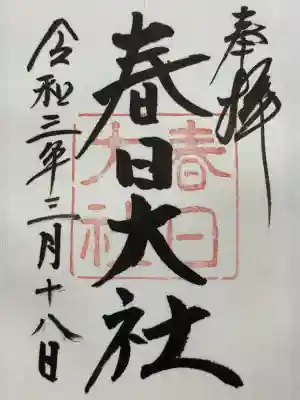 奉拝
春日大社
春日大社
令和三年三月十八日